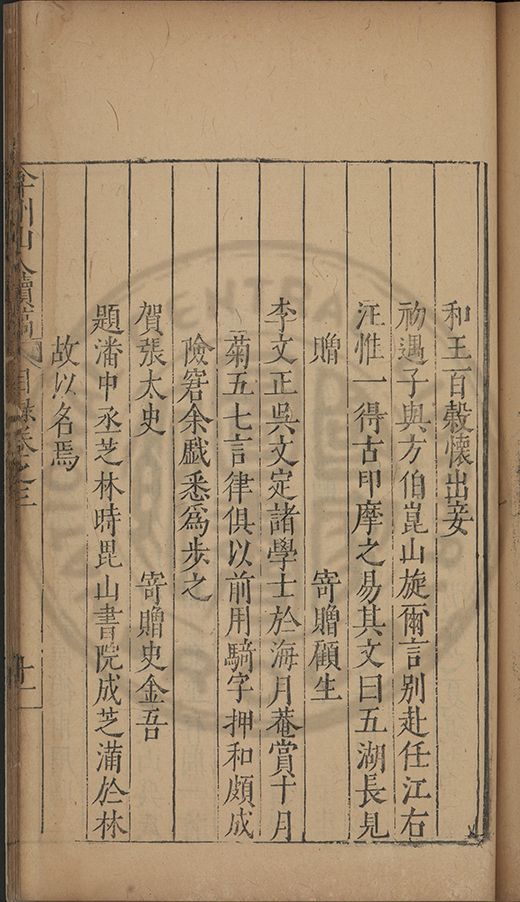 和王百穀懷出妾
初遇子與方伯崑山旋爾言別赴任江右
汪惟一得古印摩之易其文曰五湖長見
贈 寄贈顧生
李文正吳文定諸學士於海月菴賞十月
菊五七言律俱以前用騎字押和頗成
險窘余戲悉為步之
賀張太史 寄贈史金吾
題潘中丞芝林時毘山書院成芝滿於林
故以名焉
弇州山人續稿 目錄卷之三